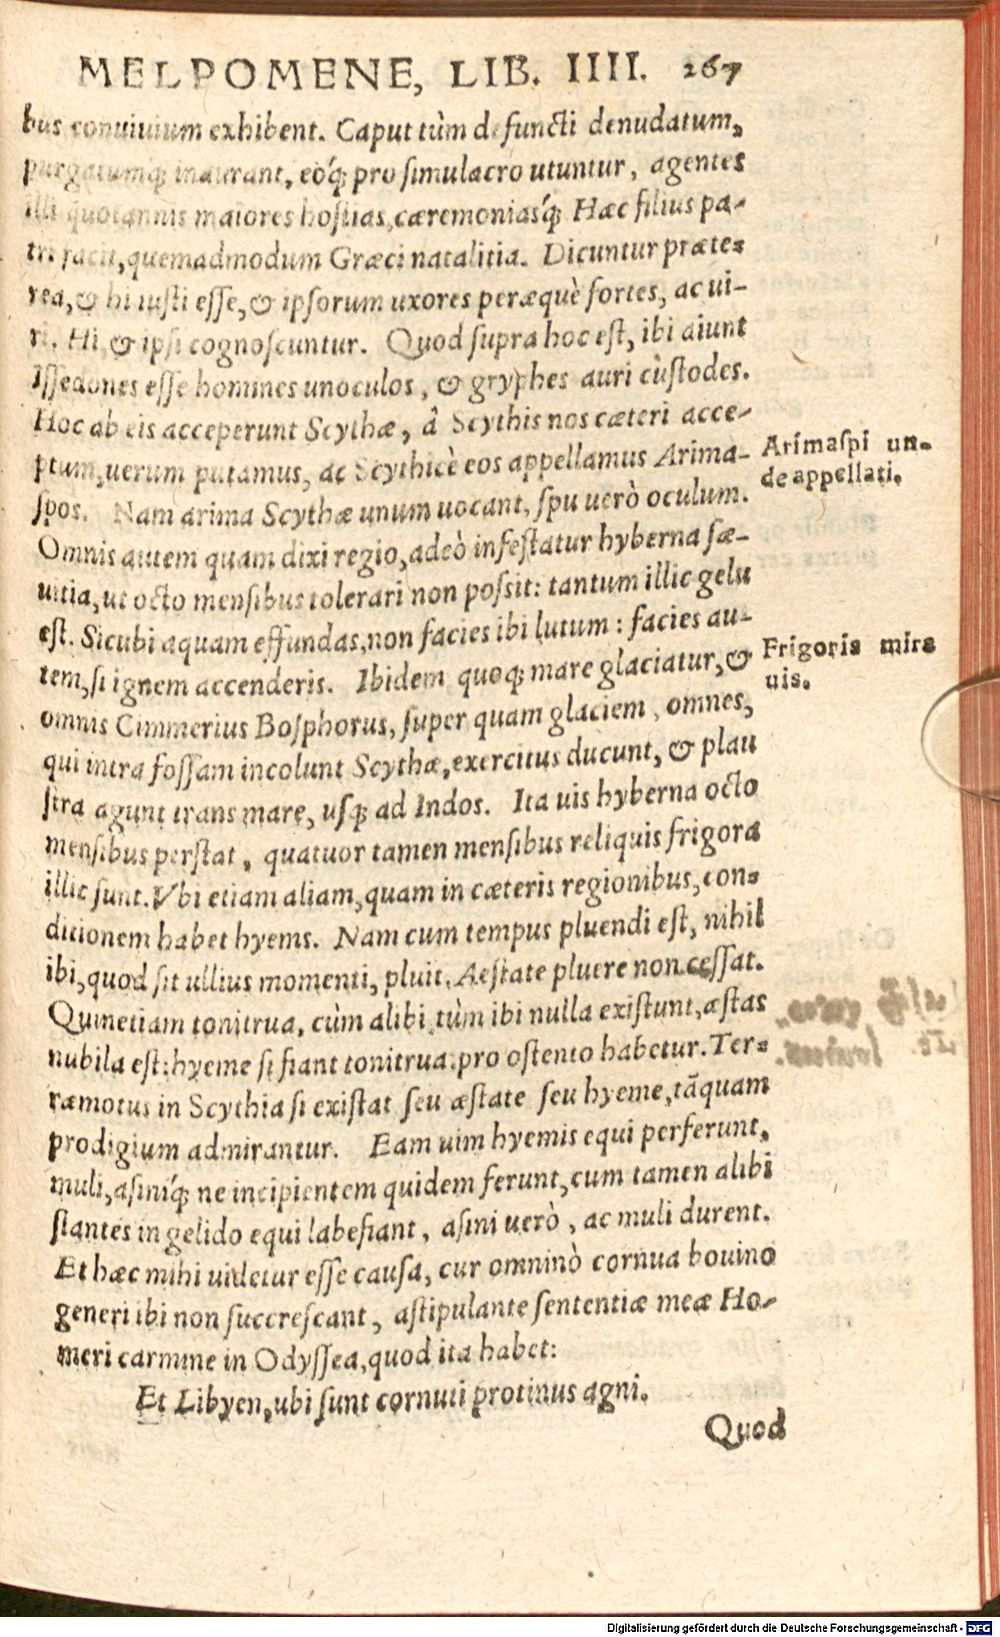 MELPOMENE, LIB. IIII. 267
bus conuiuium exhibent. Caput tùm defuncti denudatum,
purgatumq́; inaurant, eóq́; pro simulacro utuntur, agentes
illi quotannis maiores hostias, cæremoniasq́; Hæc filius pa-
tri facit, quemadmodum Græci natalitia. Dicuntur præte-
rea, & hi iusti esse, & ipsorum uxores peræquè fortes, ac ui-
ri. Hi, & ipsi cognoscuntur. Quod supra hoc est, ibi aiunt
Issedones esse homines unoculos, & gryphes auri cùstodes.
Hoc ab eis acceperunt Scythæ, â Scythis nos cæteri acce-
ptum, uerum putamus, ac Scythicè eos appellamus Arima-
spos. Nam arima Scythæ unum uocant, spu uerò oculum.
Arimaspi un-
de appellati.
Omnis autem quam dixi regio, adeò infestatur hyberna sæ-
uitia, ut octo mensibus tolerari non possit: tantum illic gelu
est. Sicubi aquam effundas, non facies ibi lutum: facies au-
tem, si ignem accenderis. Ibidem quoq; mare glaciatur, &
Frigoris mira
uis.
omnis Cimmerius Bosphorus, super quam glaciem, omnes,
qui intra fossam incolunt Scythæ, exercitus ducunt, & plau
stra agunt trans mare, usq; ad Indos. Ita uis hyberna octo
mensibus perstat, quatuor tamen mensibus reliquis frigora
illic sunt. Vbi etiam aliam, quam in cæteris regionibus, con-
ditionem habet hyems. Nam cum tempus pluendi est, nihil
ibi, quod sit ullius momenti, pluit. Aestate pluere non cessat.
Quinetiam tonitrua, cùm alibi, tùm ibi nulla existunt, æstas
nubila est: hyeme si fiant tonitrua: pro ostento habetur. Ter-
ræmotus in Scythia si existat seu æstate seu hyeme, tãquam
prodigium admirantur. Eam uim hyemis equi perferunt,
muli, asiniq́; ne incipientem quidem ferunt, cum tamen alibi
stantes in gelido equi labefiant, asini uerò, ac muli durent.
Et hæc mihi uidetur esse causa, cur omninò cornua bouino
generi ibi non succrescant, astipulante sententiæ meæ Ho-
meri carmine in Odyssea, quod ita habet:
Et Libyen, ubi sunt cornuti protinus agni.
Quod
Digitalisierung gefördert durch die Deutsche Forschungsgemeinschaft - DFG